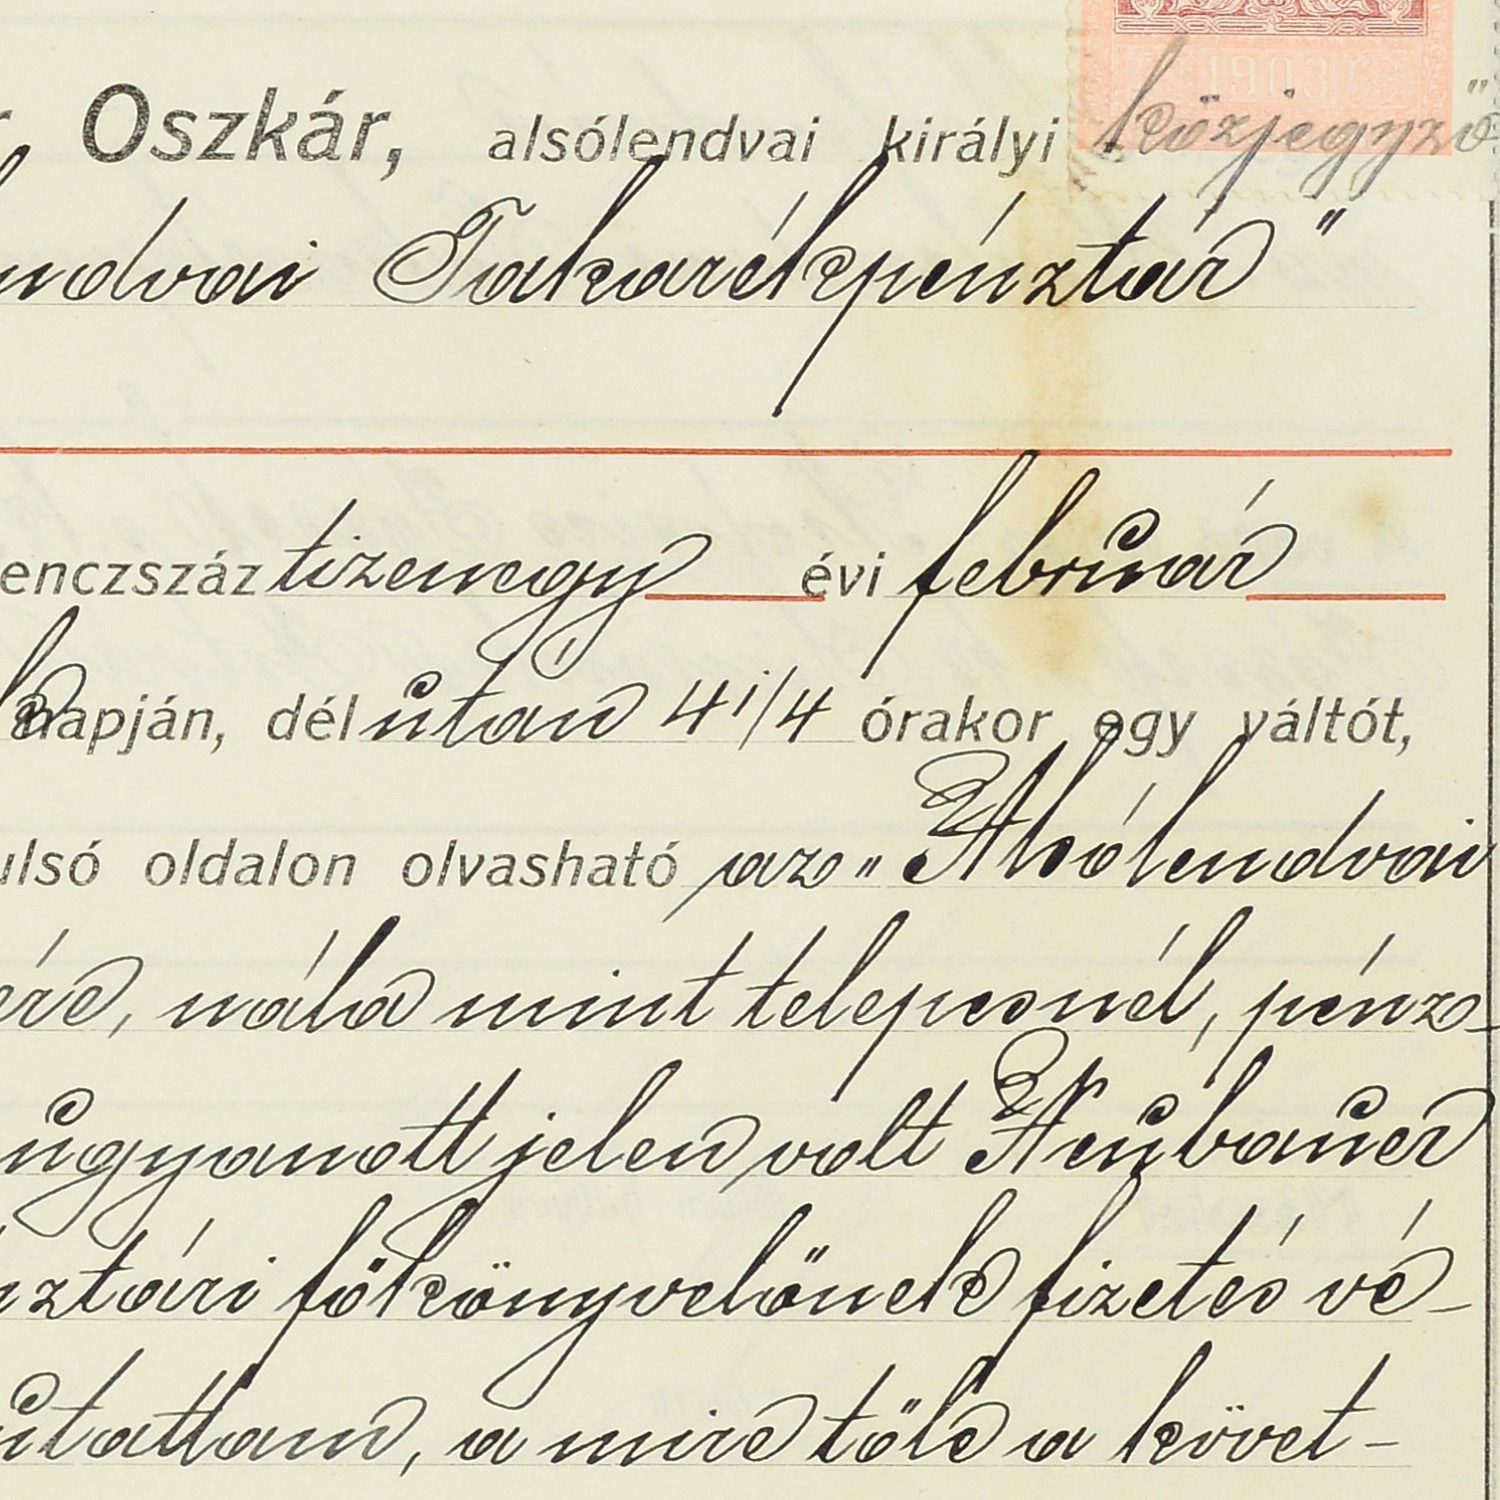 r Oszkár, alsólendvai királyi közjegyző
1903
ndvai Takarékpénztár"
enczszáz tizenegy évi február
napján, délután 4 1/4 órakor egy váltót,
ulsó oldalon olvasható az „Alsólendvai
ére, nála mint telepesnél, pénz-
ugyanott jelen volt Neubauer
ztári főkönyvelőnek fizetés vé-
utattam, a mire tőle a követ-